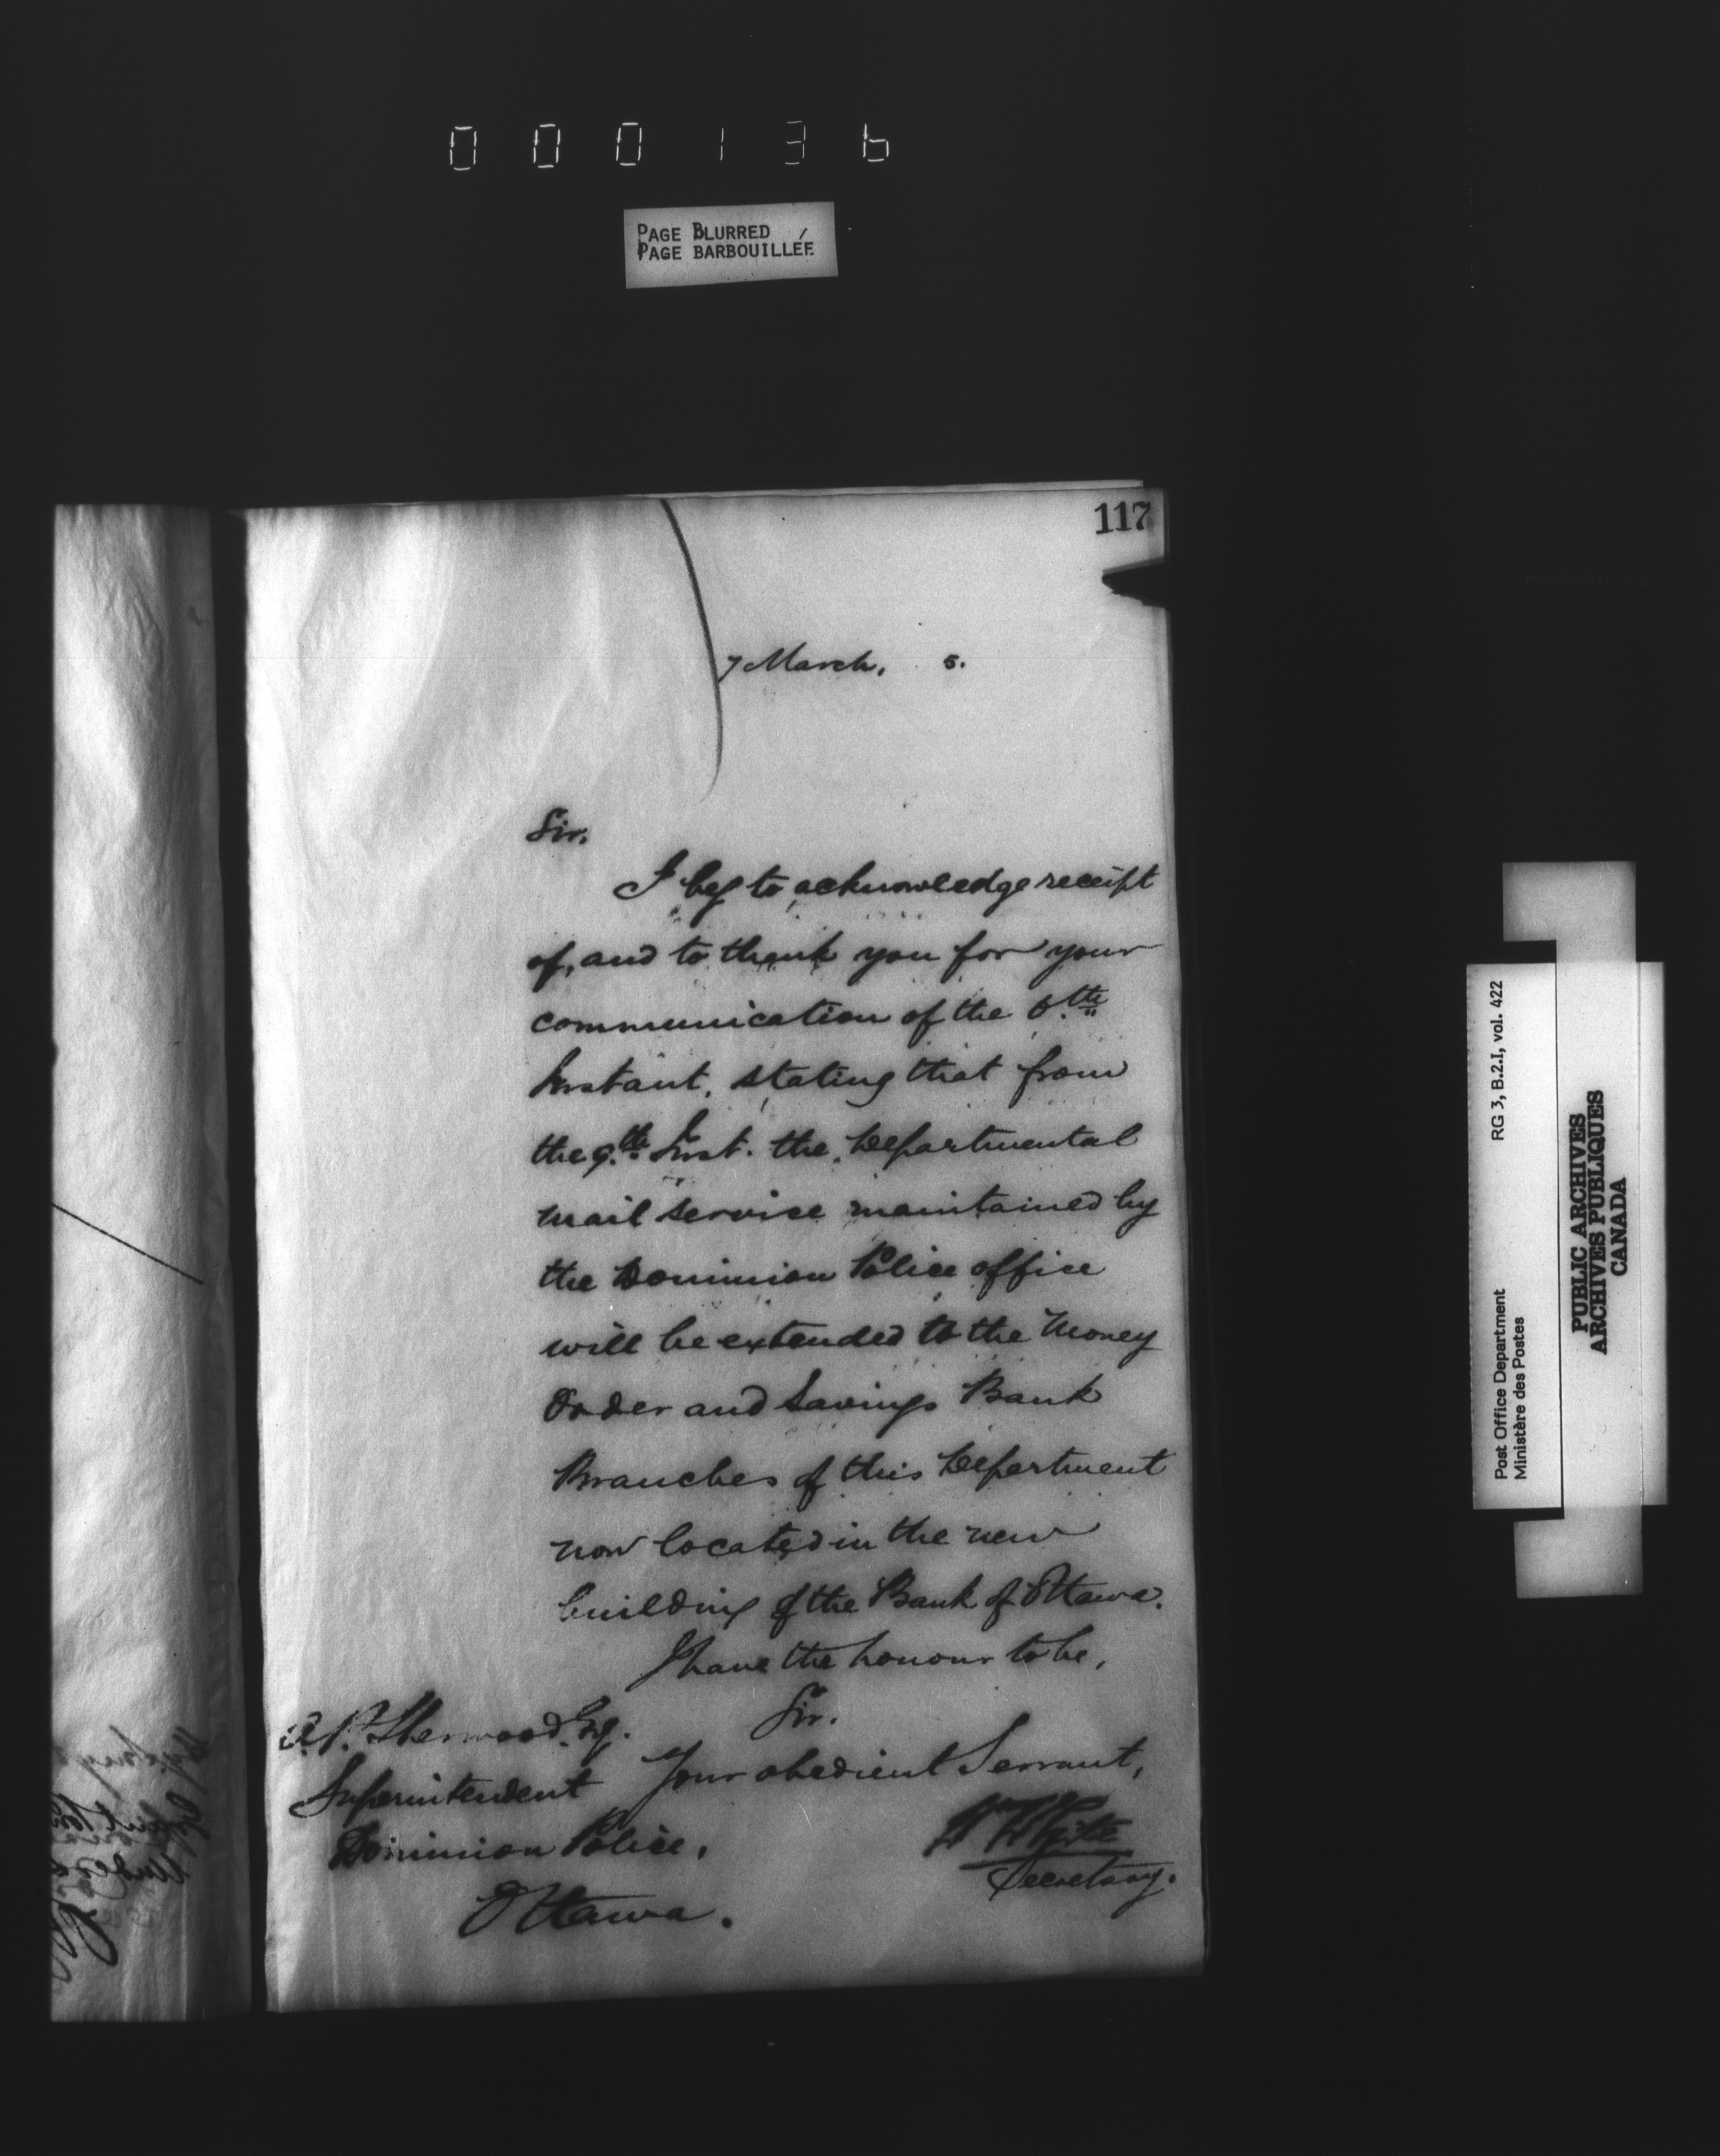 000136
PAGE BLURRED
PAGE BARBOUILLÉE
117
7 March, 5.
Sir,
I beg to acknowledge receipt
of, and to thank you for your
communication of the 6.th
Instant, stating that from
the 9.th Inst. the Departmental
mail service maintained by
the Dominion Police office
will be extended to the Money
Order and Savings Bank
Branches of this Department
now located in the new
building of the Bank of Ottawa.
I have the honour to be,
Sir.
Your obedient Servant,
Secretary.
A. P. Sherwood Esq.
Superintendent
Dominion Police,
Ottawa.
RG 3, B.2.I, vol. 422
Post Office Department
Ministère des Postes
PUBLIC ARCHIVES
ARCHIVES PUBLIQUES
CANADA